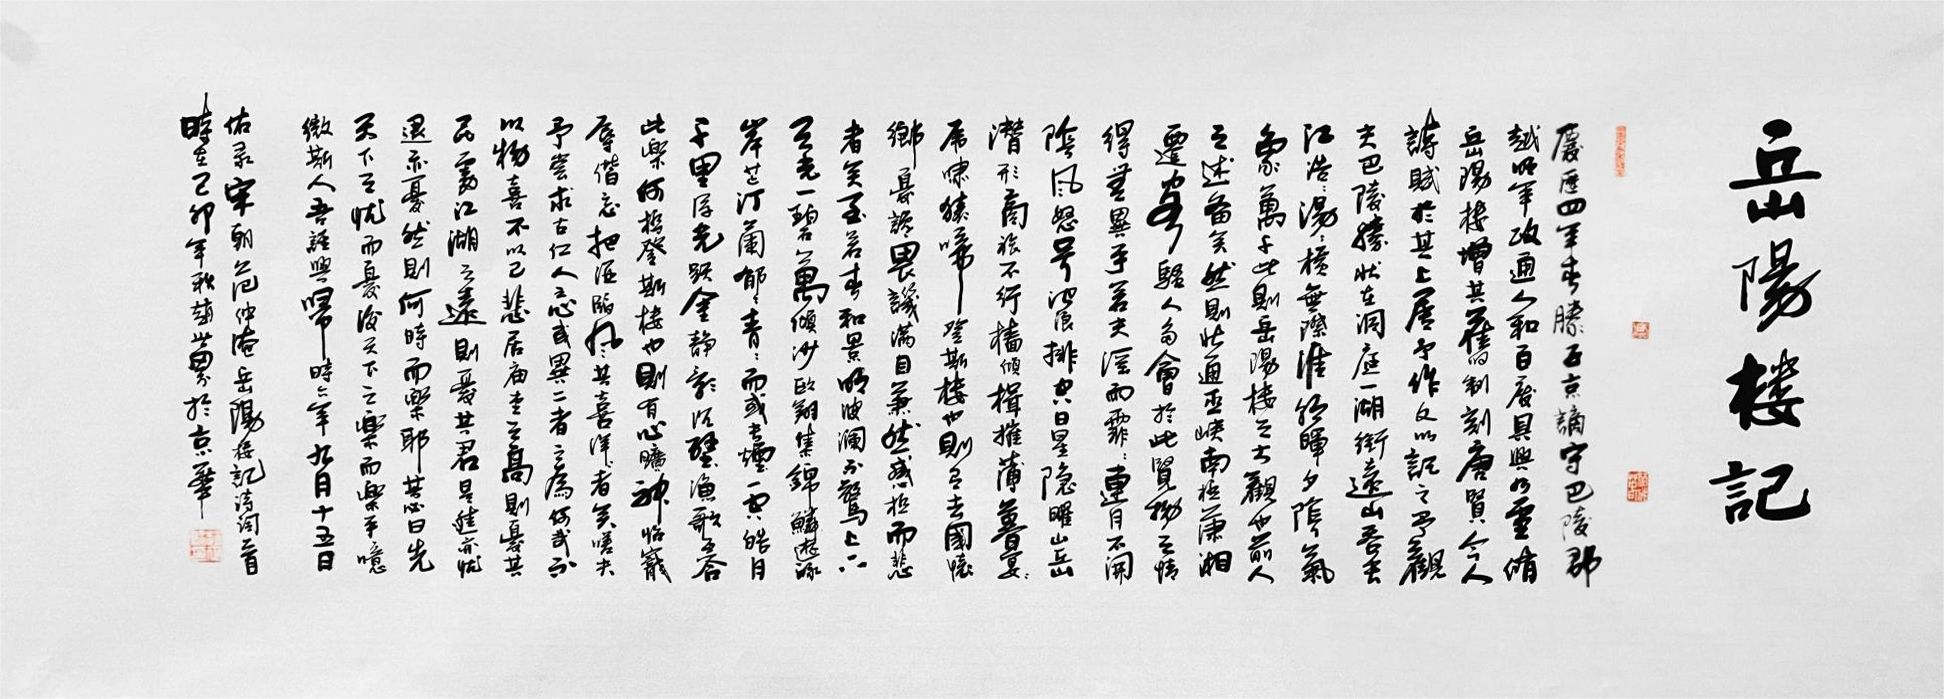 岳陽楼記
慶歷四年春滕子京謫守巴陵郡
越明年政通人和百廢具興乃重脩
岳陽楼增其舊制刻唐賢今人
詩賦於其上屬予作文以記之予觀
夫巴陵勝狀在洞庭一湖銜遠山吞長
江浩浩湯湯橫無際涯朝暉夕陰氣
象萬千此則岳陽楼之大觀也前人
之述备矣然則北通巫峽南极潇湘
遷客騷人多會於此覽物之情
得無異乎若夫淫雨霏霏連月不開
陰風怒号浊浪排空日星隐曜山岳
潛形商旅不行檣傾楫摧薄暮冥冥
虎啸猿啼登斯楼也則有去國懷
鄉憂讒畏譏满目萧然感极而悲
者矣至若春和景明波澜不驚上下
天光一碧萬頃沙鷗翔集錦鱗遊泳
岸芷汀蘭郁郁青青而或長煙一空皓月
千里浮光跃金静影沉璧漁歌互答
此樂何极登斯楼也則有心曠神怡寵
辱偕忘把酒臨风其喜洋洋者矣嗟夫
予嘗求古仁人之心或異二者之為何哉不
以物喜不以己悲居庙堂之高則憂其
民處江湖之遠則憂其君是進亦忧
退亦憂然則何時而樂耶其必曰先
天下之忧而憂後天下之樂而樂乎噫
微斯人吾誰與歸時六年九月十五日
右录宋朝范仲淹岳陽楼記詩詞一首
時在己卯年秋 於京華